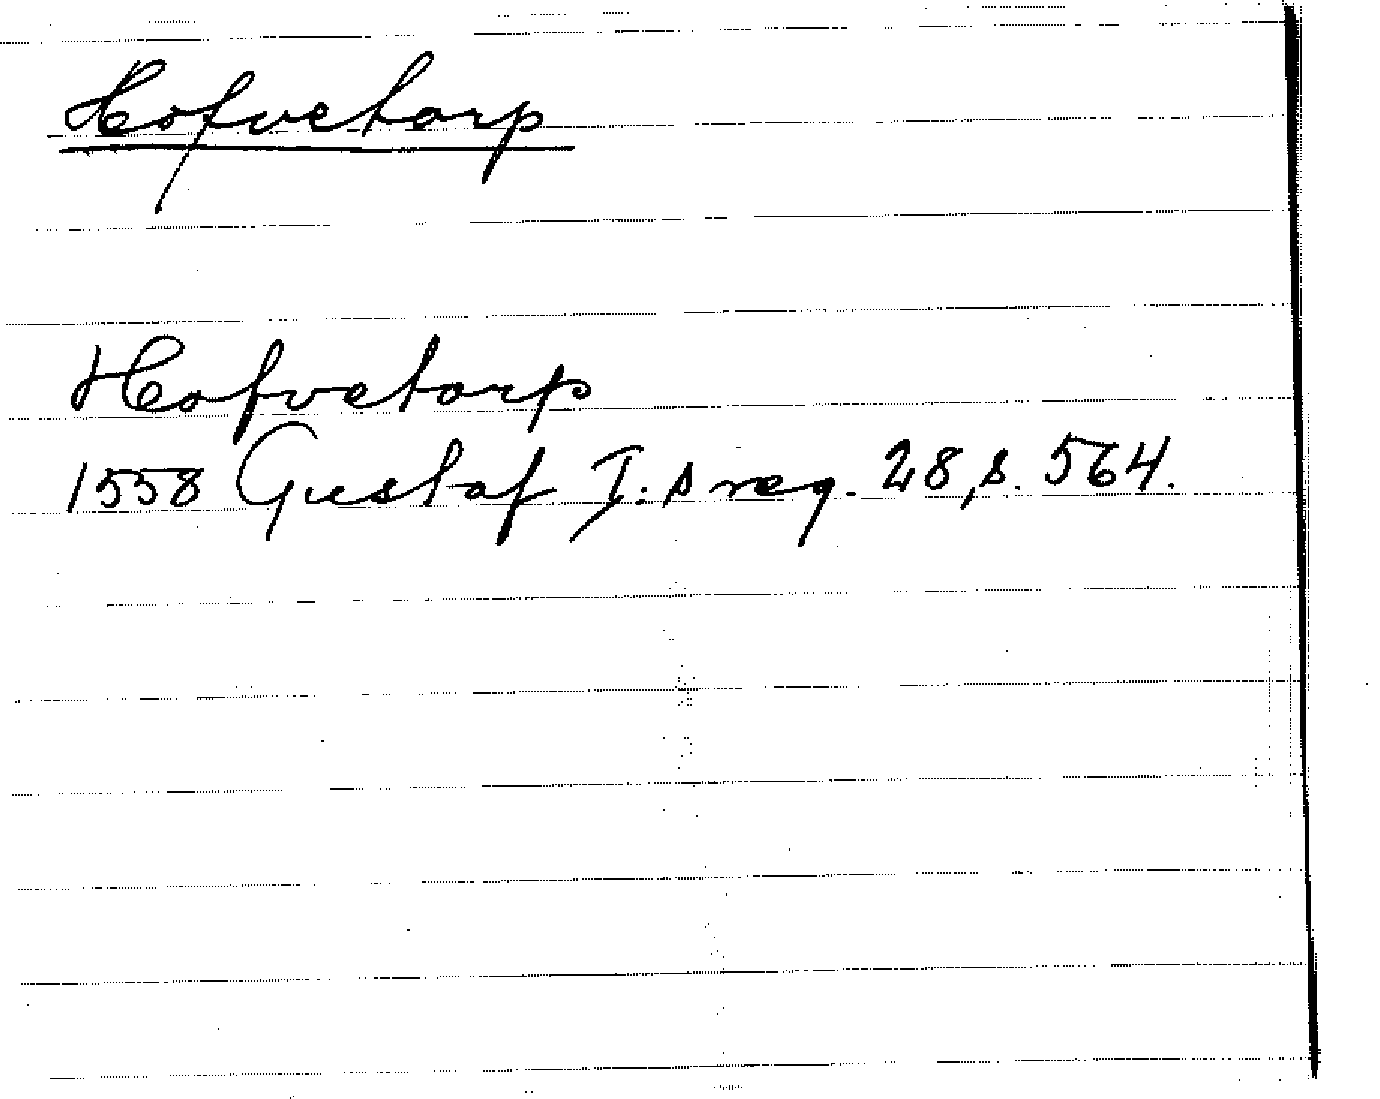 Hofvetorp
Hofvetorp
1558 Gustaf I:s reg. 28, s. 564.